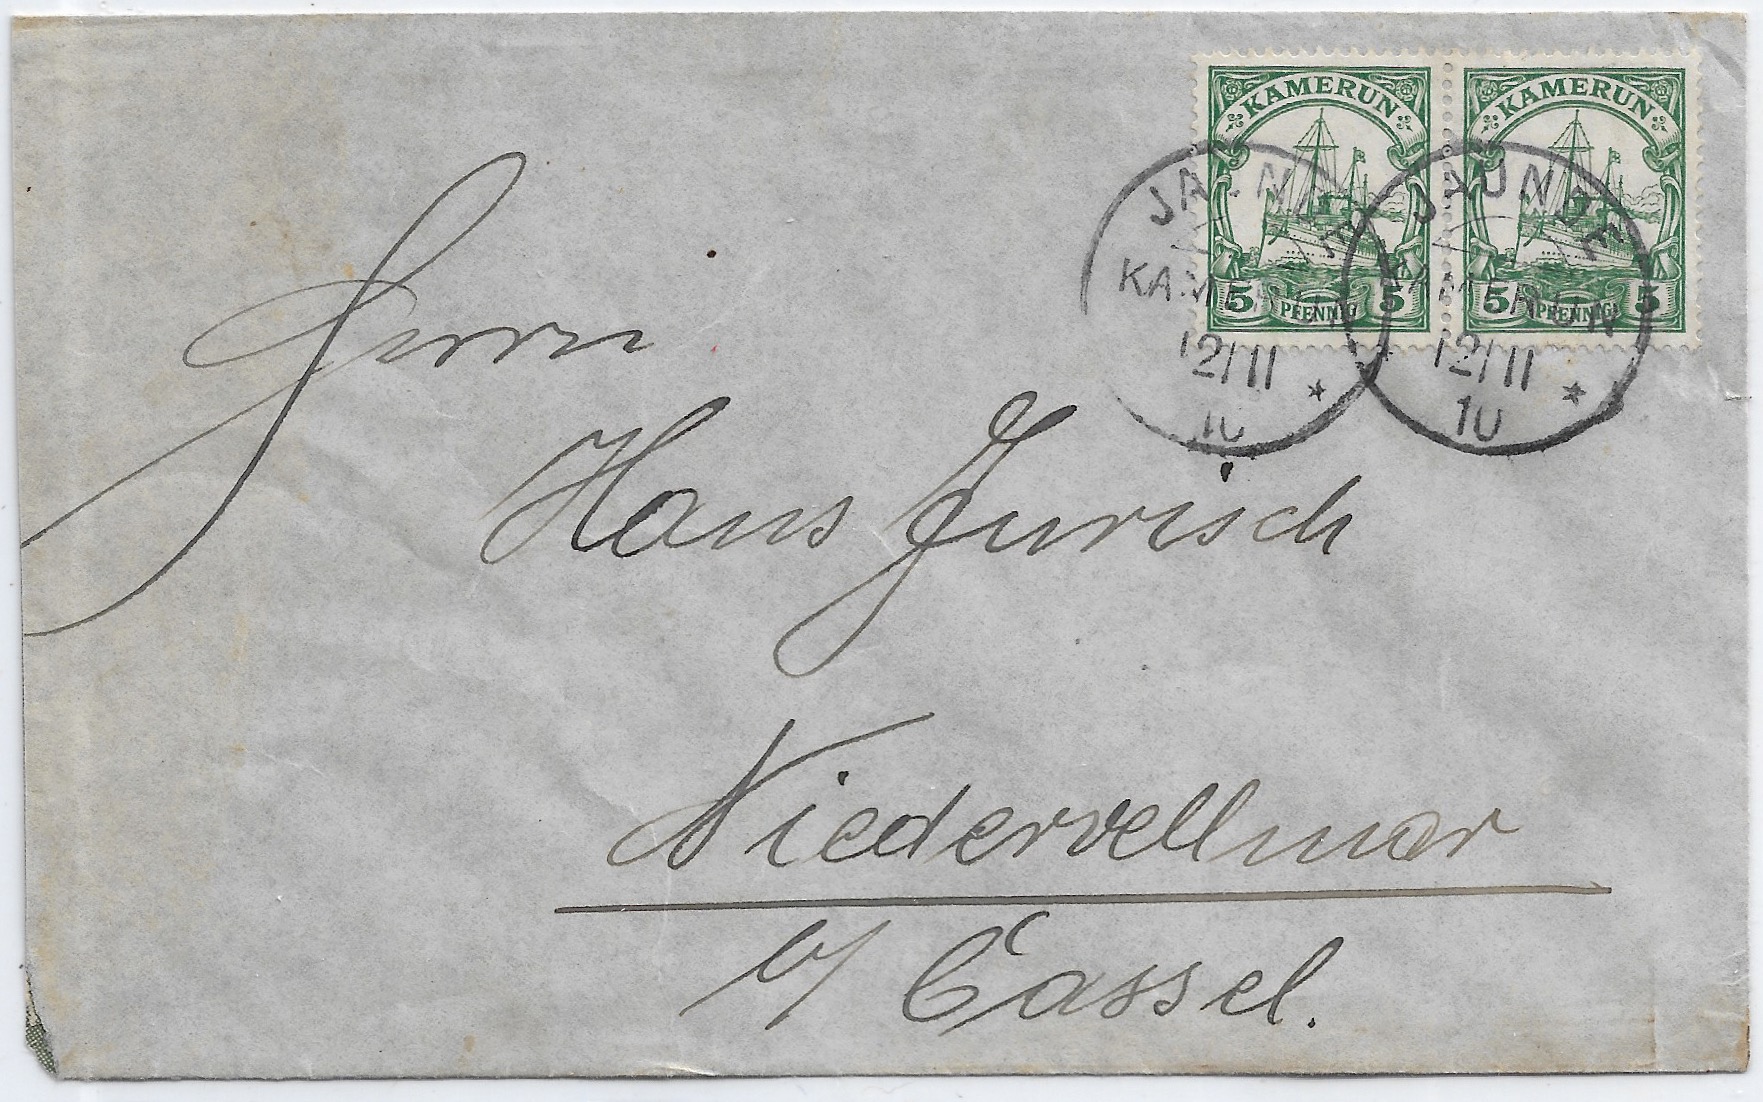 KAMERUN KAMERUN
5 PFENNIG 5 5 PFENNIG 5
JAUNDE JAUNDE
KAMERUN KAMERUN
12/11 12/11
10 10
Herrn
Hans Jurisch
Niedervellmar
b/ Cassel.